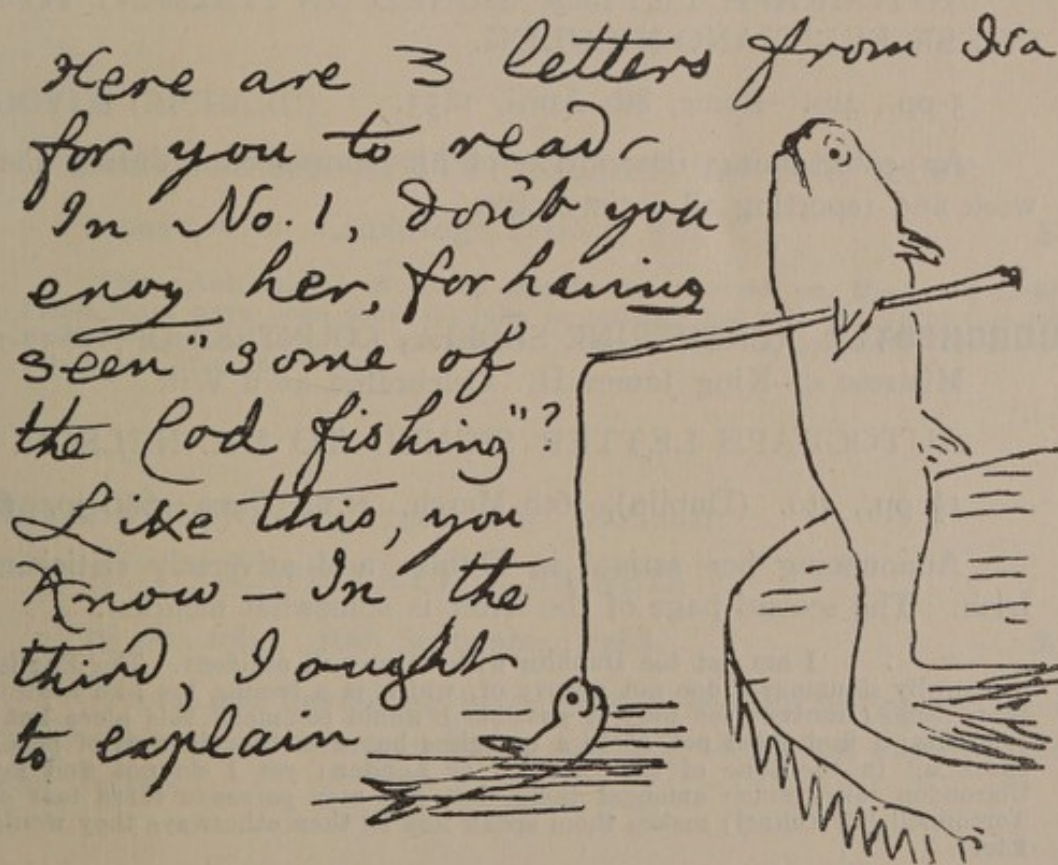 Here are 3 letters from Isa
for you to read.
In No. 1, don't you
envy her, for having
seen "some of
the Cod fishing"?
Like this, you
know — In the
third, I ought
to explain